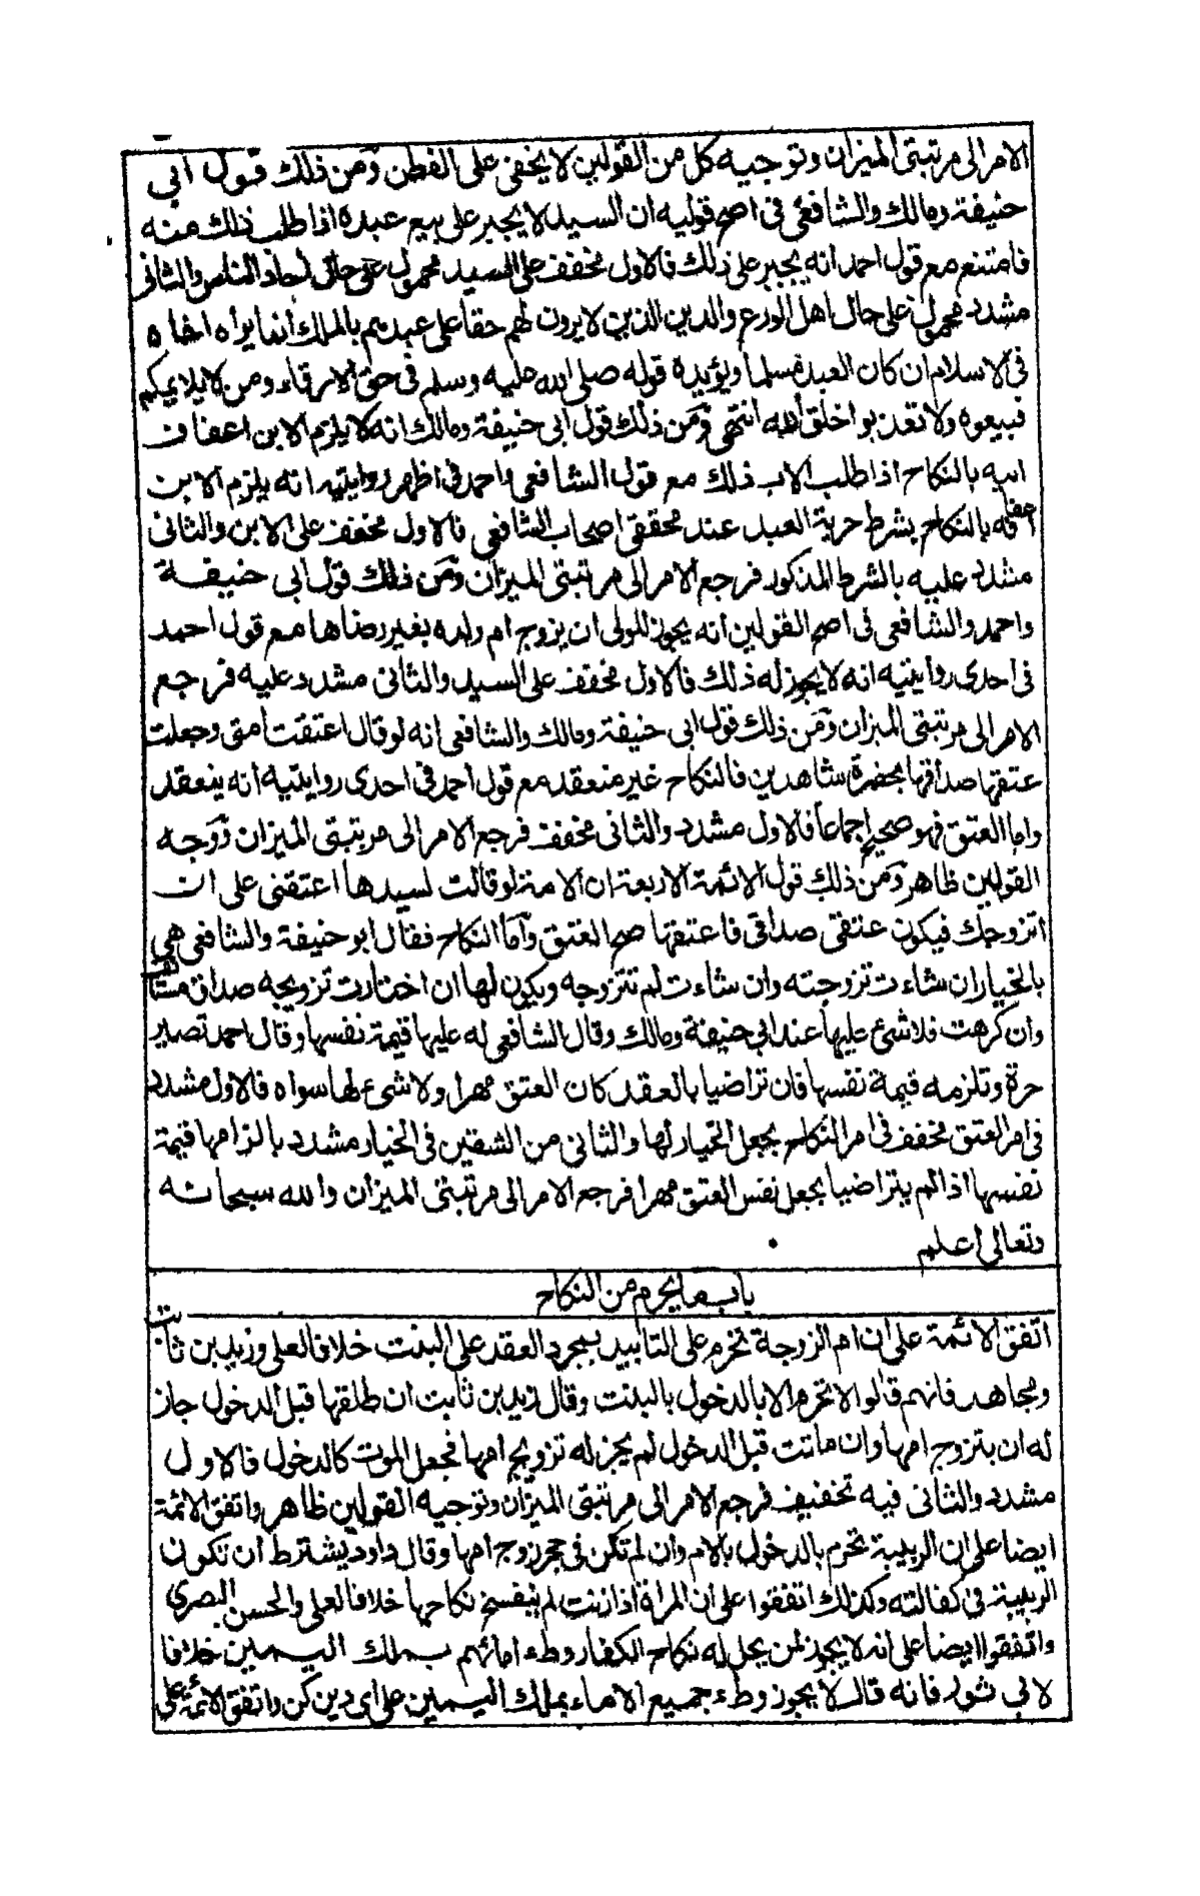 الامر الى مرتبتى الميزان وتوجيه كل من القولين لا يخفى على الفطن ومن ذلك قول ابى
حنيفة ومالك والشافعى فى اصح قوليه ان السيد لا يجبر على بيع عبده اذا طلب ذلك منه
فامتنع مع قول احمد انه يجبر على ذلك فالاول مخفف على السيد محمول على حال احاد الناس والثانى
مشدد محمول على حال اهل الورع والدين الذين لا يرون لهم حقا على عبدهم بالملك انما يراه اخاه
فى الاسلام ان كان العبد مسلما ويؤيده قوله صلى الله عليه وسلم فى حق الارقاء ومن لا يلايمكم
فبيعوه ولا تعذبوا خلق الله انتهى ومن ذلك قول ابى حنيفة ومالك انه لا يلزم الابن اعفاف
ابيه بالنكاح اذا طلب الاب ذلك مع قول الشافعى واحمد فى اظهر روايتيه انه يلزم الابن
اعفافه بالنكاح بشرط حرية العبد عند محققى اصحاب الشافعى فالاول مخفف على الابن والثانى
مشدد عليه بالشرط المذكور فرجع الامر الى مرتبتى الميزان ومن ذلك قول ابى حنيفة
واحمد والشافعى فى اصح القولين انه يجوز للولى ان يزوج ام ولده بغير رضاها مع قول احمد
فى احدى روايتيه انه لا يجوز له ذلك فالاول مخفف على السيد والثانى مشدد عليه فرجع
الامر الى مرتبتى الميزان ومن ذلك قول ابى حنيفة ومالك والشافعى انه لو قال اعتقت امتى وجعلت
عتقها صداقها بحضرة شاهدين فالنكاح غير منعقد مع قول احمد فى احدى روايتيه انه ينعقد
واما العتق فهو صحيح اجماعا فالاول مشدد والثانى مخفف فرجع الامر الى مرتبتى الميزان ووجه
القولين ظاهر ومن ذلك قول الائمة الاربعة ان الامة لو قالت لسيدها اعتقنى على ان
اتزوجك فيكون عتقى صداقى فاعتقها صح العتق واما النكاح فقال ابو حنيفة والشافعى هى
بالخيار ان شاءت تزوجته وان شاءت لم تتزوجه ويكون لها ان اختارت تزويجه صداق مستانف
وان كرهت فلا شئ عليها عند ابى حنيفة ومالك وقال الشافعى له عليها قيمة نفسها وقال احمد تصير
حرة وتلزمه قيمة نفسها فان تراضيا بالعقد كان العتق مهرا ولا شئ لها سواه فالاول مشدد
فى امر العتق مخفف فى امر النكاح بجعل الخيار لها والثانى من الشقين فى الخيار مشدد بالزامها قيمة
نفسها اذا لم يتراضيا بجعل نفس العتق مهرا فرجع الامر الى مرتبتى الميزان والله سبحانه
وتعالى اعلم
باب ما يحرم من النكاح
اتفق الائمة على ان ام الزوجة تحرم على التابيد بمجرد العقد على البنت خلافا لعلى وزيد بن ثابت
ومجاهد فانهم قالوا لا تحرم الا بالدخول بالبنت وقال زيد بن ثابت ان طلقها قبل الدخول جاز
له ان يتزوج امها وان ماتت قبل الدخول لم يجز له تزويج امها فجعل الموت كالدخول فالاول
مشدد والثانى فيه تخفيف فرجع الامر الى مرتبتى الميزان وتوجيه القولين ظاهر واتفق الائمة
ايضا على ان الربيبة تحرم بالدخول بالام وان لم تكن فى حجر زوج امها وقال داود يشترط ان تكون
الربيبة فى كفالته وكذلك اتفقوا على ان المراة اذا زنت لم ينفسخ نكاحها خلافا لعلى والحسن البصرى
واتفقوا ايضا على انه لا يجوز لمن يحل له نكاح الكفار وطء امائهم بملك اليمين خلافا
لابى ثور فانه قال لا يجوز وطء جميع الاماء بملك اليمين على اى دين كن واتفق الائمة على